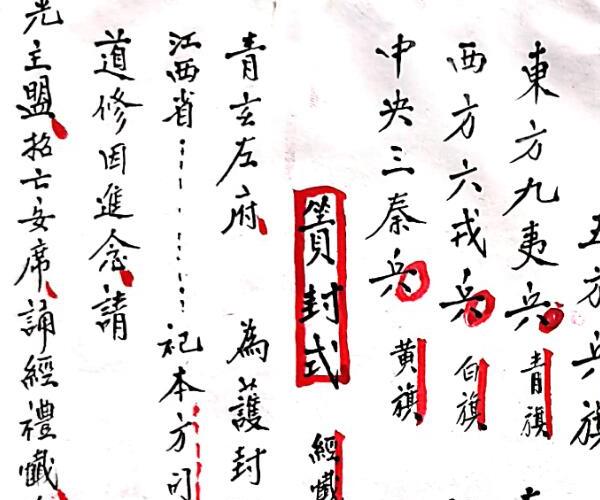 五方兵旗
東方九夷兵 青旗
西方六戎兵 白旗
中央三秦兵 黄旗
賫封式 經懺
青玄左府 為䕶封
江西省⋯⋯⋯ 祀本方司
道修因進念請
光主盟招亡安席誦經禮懺